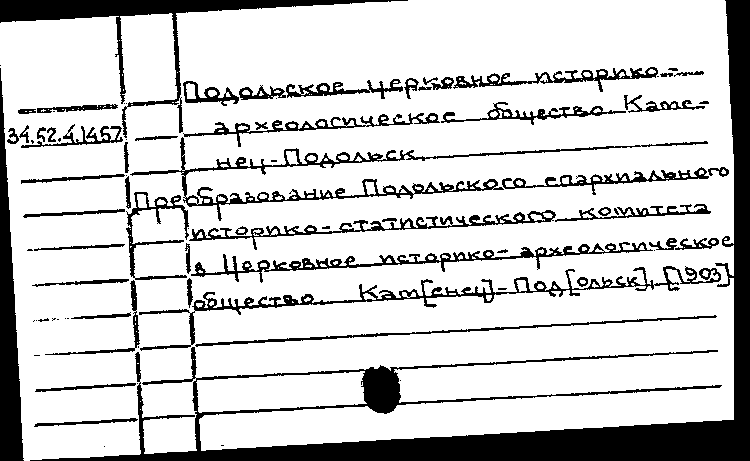 Подольское церковное историко-
34.52.4.1457 археологическое общество. Каме-
нец-Подольск.
Преобразование Подольского епархиального
историко-статистического комитета
в Церковное историко-археологическое
общество. Кам[енец]-Под[ольск], [1903]